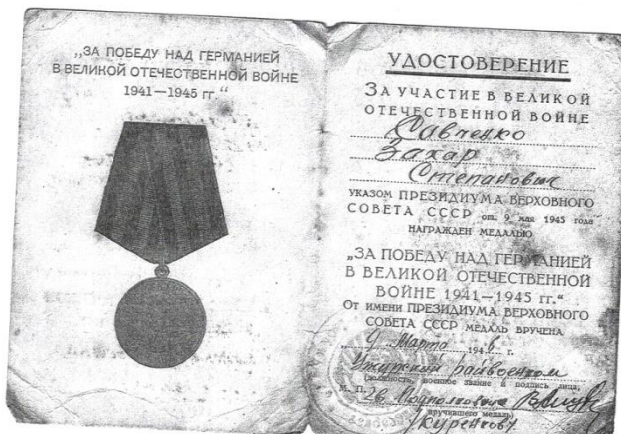 „ЗА ПОБЕДУ НАД ГЕРМАНИЕЙ
В ВЕЛИКОЙ ОТЕЧЕСТВЕННОЙ ВОЙНЕ
1941—1945 гг.“
УДОСТОВЕРЕНИЕ
ЗА УЧАСТИЕ В ВЕЛИКОЙ
ОТЕЧЕСТВЕННОЙ ВОЙНЕ
Савченко
Захар
Степанович
УКАЗОМ ПРЕЗИДИУМА ВЕРХОВНОГО
СОВЕТА СССР от 9 мая 1945 года
НАГРАЖДЕН МЕДАЛЬЮ
„ЗА ПОБЕДУ НАД ГЕРМАНИЕЙ
В ВЕЛИКОЙ ОТЕЧЕСТВЕННОЙ
ВОЙНЕ 1941—1945 гг.“
От имени ПРЕЗИДИУМА ВЕРХОВНОГО
СОВЕТА СССР МЕДАЛЬ ВРУЧЕНА
9 Марта 1946 г.
Ужурский райвоенком
(должность, военное звание и подпись лица,
М. П. Подполковник
вручившего медаль)